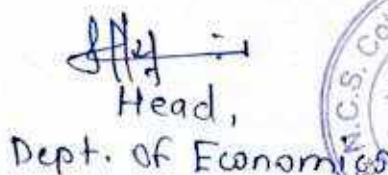 Head,
Dept. of Economics
N.C.S. Co